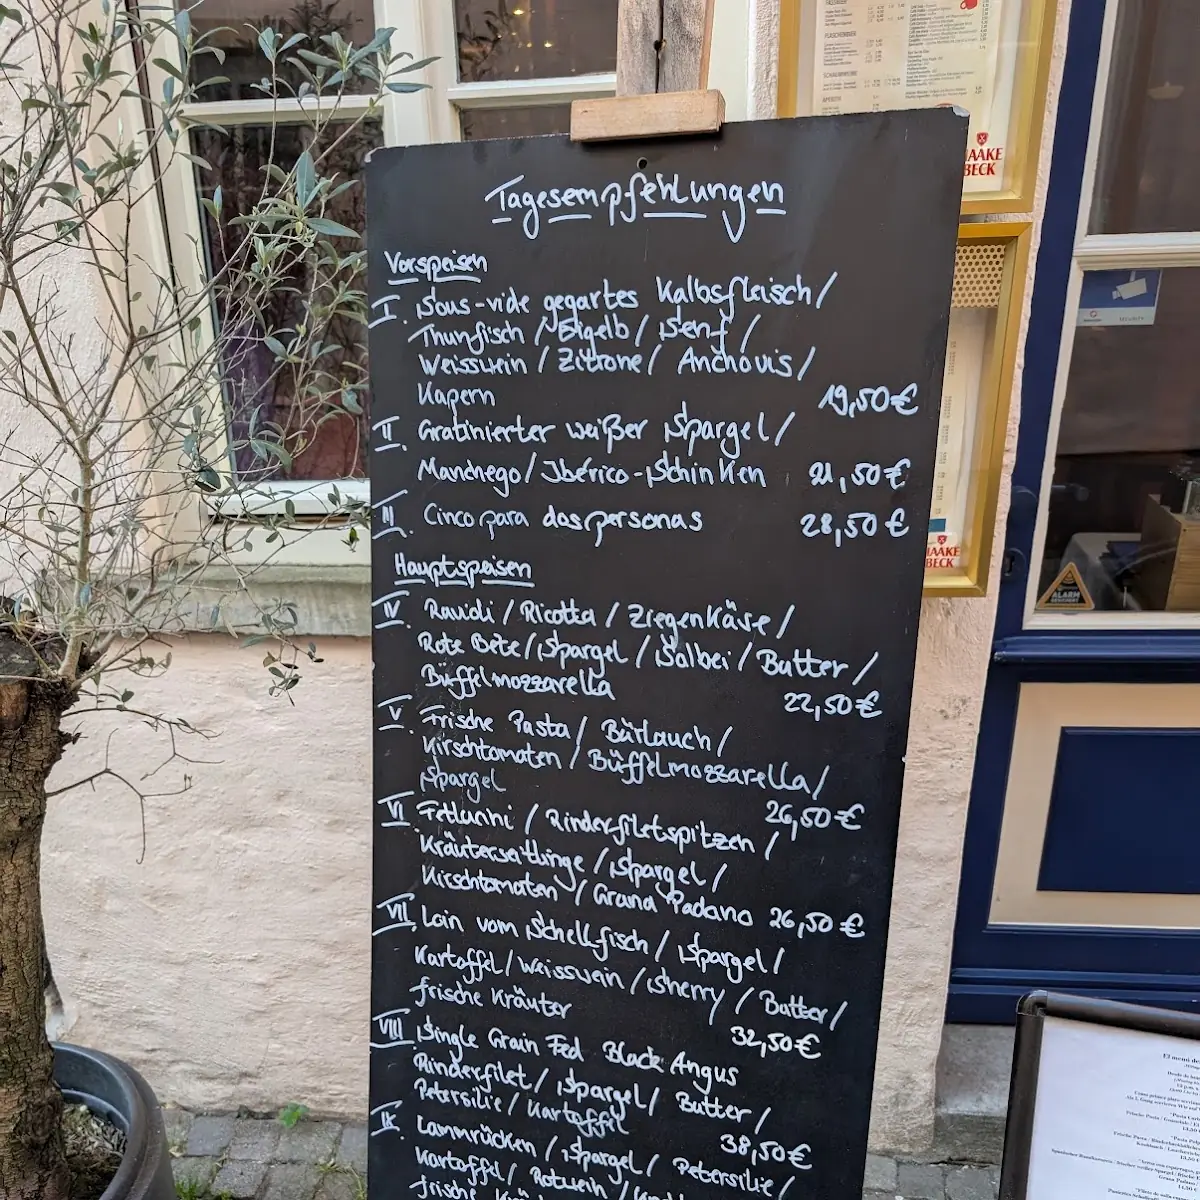 Tagesempfehlungen
Vorspeisen
I. Sous-vide gegartes Kalbsfleisch/
Thunfisch / Eigelb / Senf /
Weisswein / Zitrone / Anchovis /
Kapern 19,50€
II. Gratinierter weißer Spargel/
Manchego / Ibérico-Schinken 21,50€
III. Cinco para dos personas 28,50€
Hauptspeisen
IV. Ravioli / Ricotta / Ziegenkäse /
Rote Bete / Spargel / Salbei / Butter /
Büffelmozzarella 22,50€
V. Frische Pasta / Bärlauch /
Kirschtomaten / Büffelmozzarella /
Spargel 26,50€
VI. Fettucini / Rinderfiletspitzen /
Kräuterseitlinge / Spargel /
Kirschtomaten / Grana Padano 26,50€
VII. Loin vom Schellfisch / Spargel /
Kartoffel / Weisswein / Sherry / Butter /
frische Kräuter 32,50€
VIII. Single Grain Fed Black Angus
Rinderfilet / Spargel / Butter /
Petersilie / Kartoffel 38,50€
IX. Lammrücken / Spargel / Petersilie /
Kartoffel / Rotwein /
frische
HAAKE
BECK
HAAKE
BECK
ALARM
El menú de